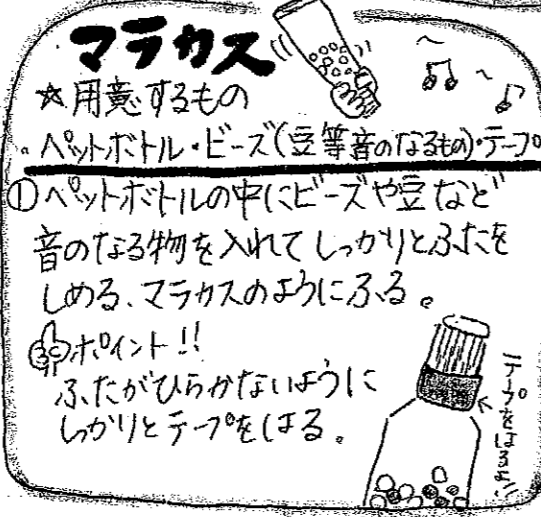 マラカス
☆用意するもの
・ペットボトル・ビーズ(豆等音のなるもの)・テープ
①ペットボトルの中にビーズや豆など
音のなる物を入れてしっかりとふたを
しめる、マラカスのようにふる。
ポイント!!
ふたがひらかないように
しっかりとテープをはる。
テープをはる